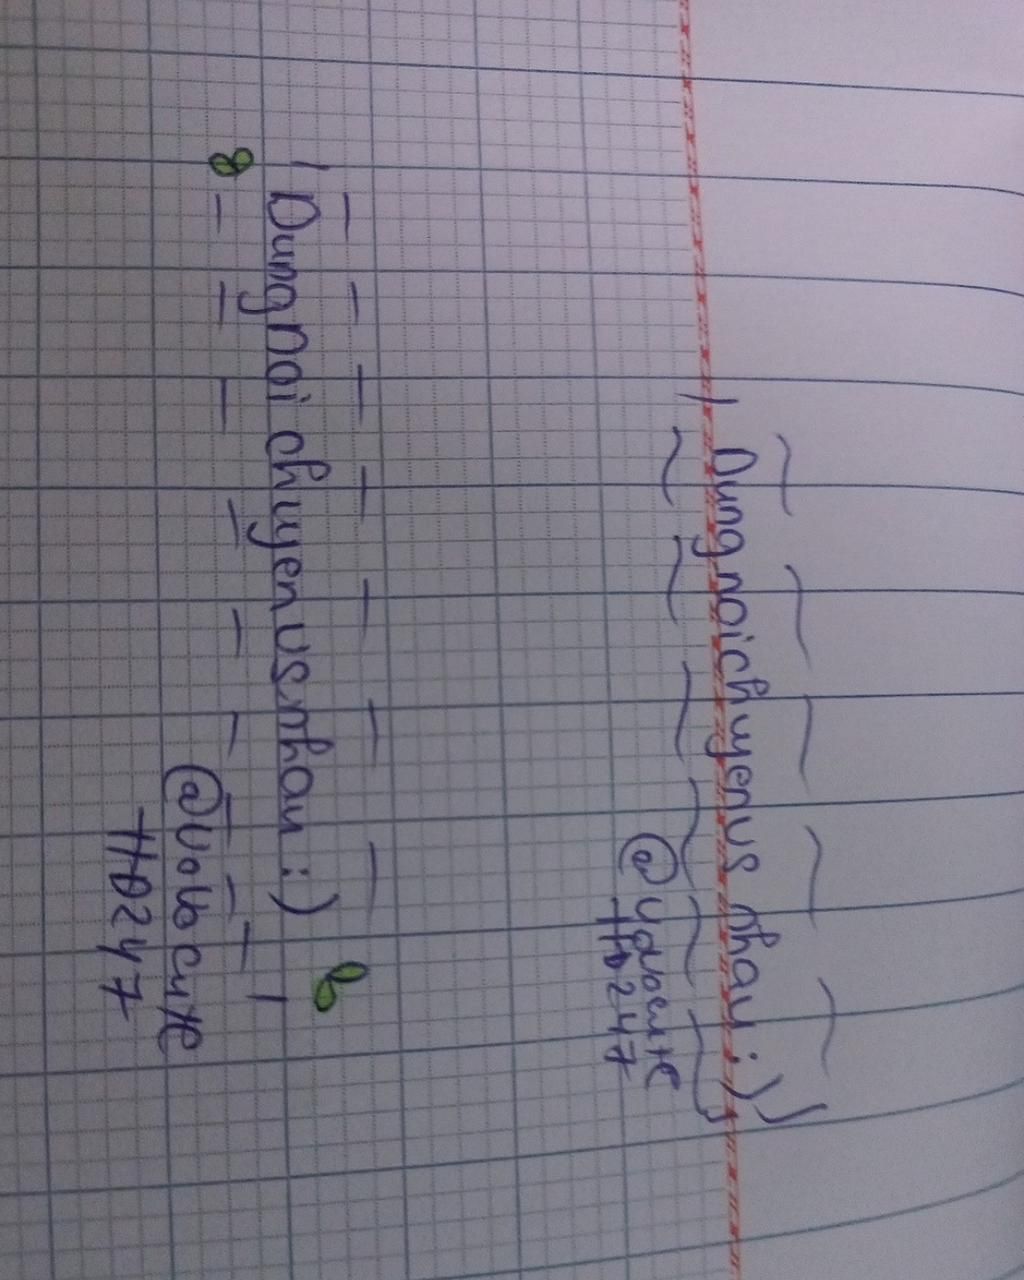 Dung noi chuyen vs nhau :))
@vobocute
HD247
Dung noi chuyen vs nhau :)
@vobocute
HD247